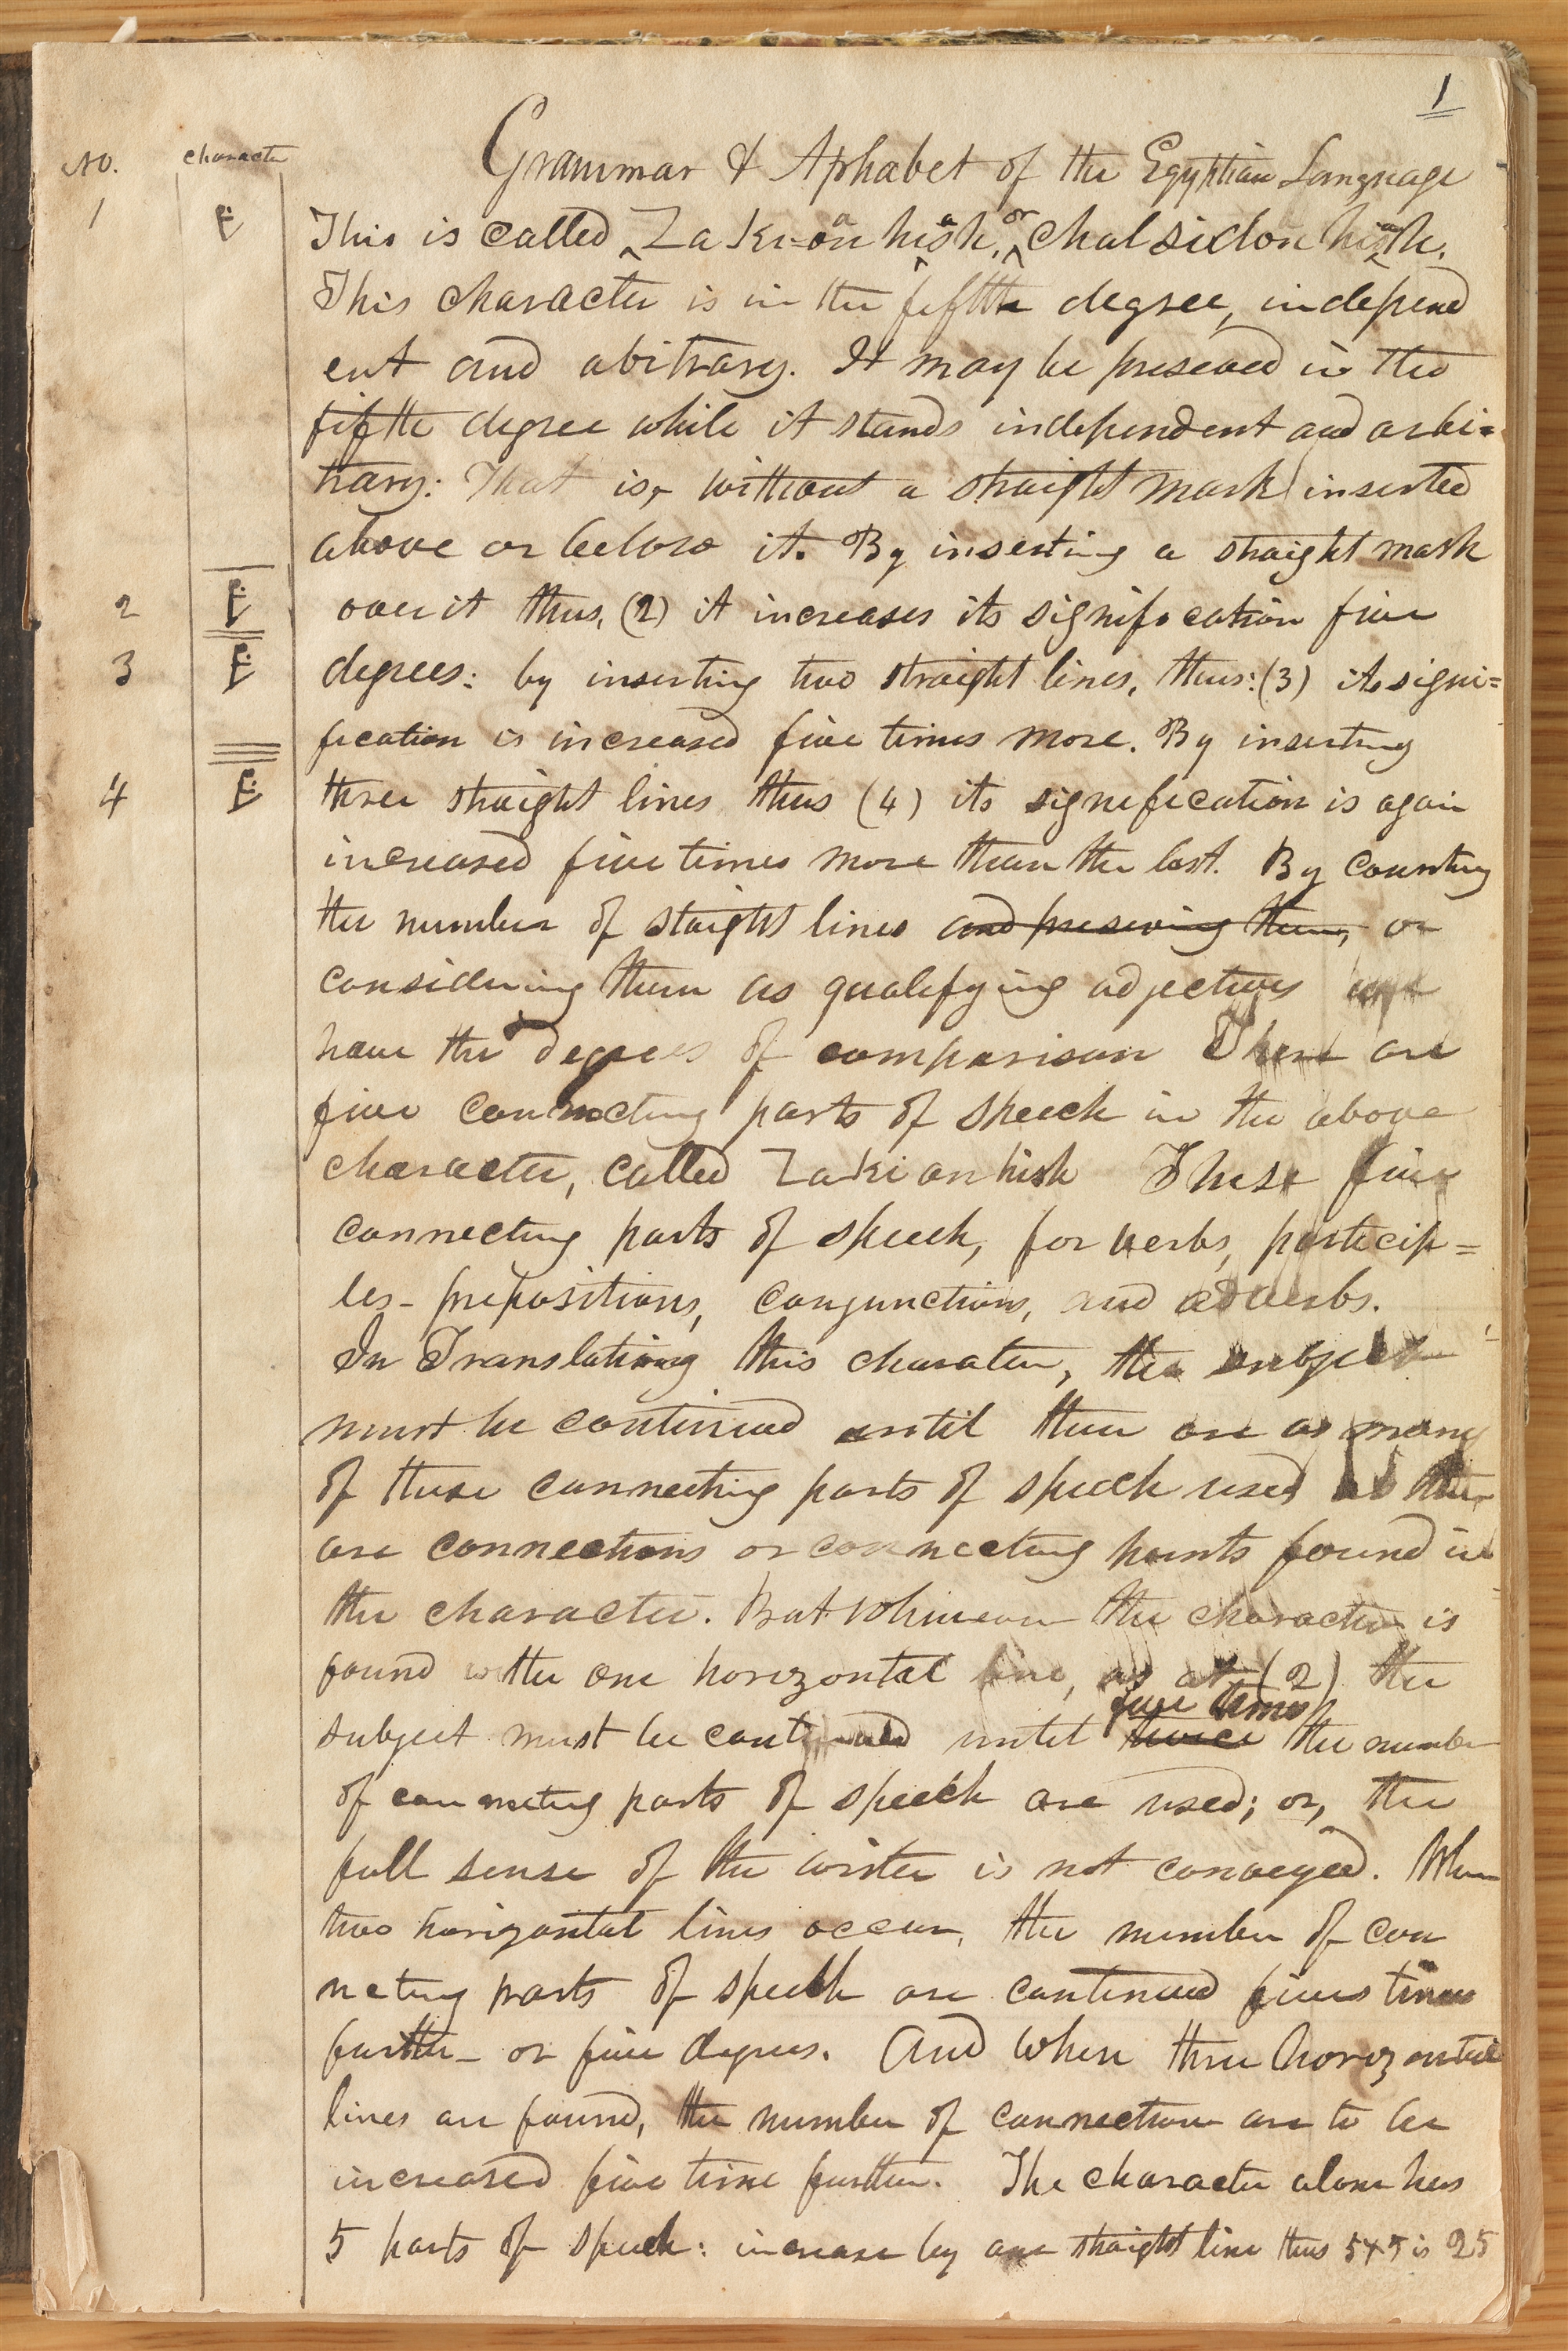 1
No. character
Grammar & Aphabet of the Egyptian Language
1 This is called Za Ki=an hish, or chal sidon hish.
This character is in the fifth degree, independ
ent and abitrary. It may be preseved in the
fifth degree while it stands independent and arbi=
trary: That is, without a straight mark inserted
above or below it. By inserting a straight mark
2 over it thus, (2) it increases its signification five
3 degrees: by inserting two straight lines, thus: (3) its signi=
fication is increased five times more. By inserting
4 three straight lines thus (4) its signification is again
increased five times more than the last. By counting
the number of staight lines and preserving them, or
considering them as qualifying adjectives we
have the degrees of comparison There are
five connecting parts of speech in the above
character, called Za Ki an hish These five
connecting parts of speech, for verbs, particip=
les- prepositions, conjunctions, and adverbs.
In Translating this charater, the subject
must be continued until there are as many
of these connecting parts of speech used as there
are connections or connecting points found in
the character. But whenever the character is
found with one horizontal line, as at (2) the
five times
subject must be continued until twice the number
of connecting parts of speech are used; or, the
full sense of the writer is not conveyed. When
two horizontal lines occur, the number of con
necting parts of speech are continued five times
further- or five degrees. And when three horizontal
lines are found, the number of connections are to be
increased five times further. The character alone has
5 parts of speech: increase by one straight line thus 5x5 is 25